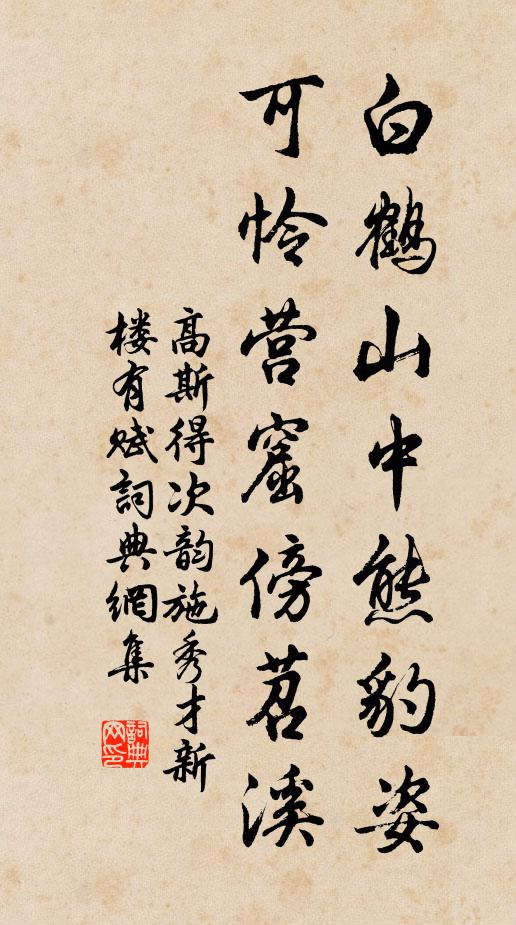 白鶴山中熊豹姿
可怜营窟傍苕溪
高斯得次韵施秀才新
楼有赋詞典網集
詞典网印